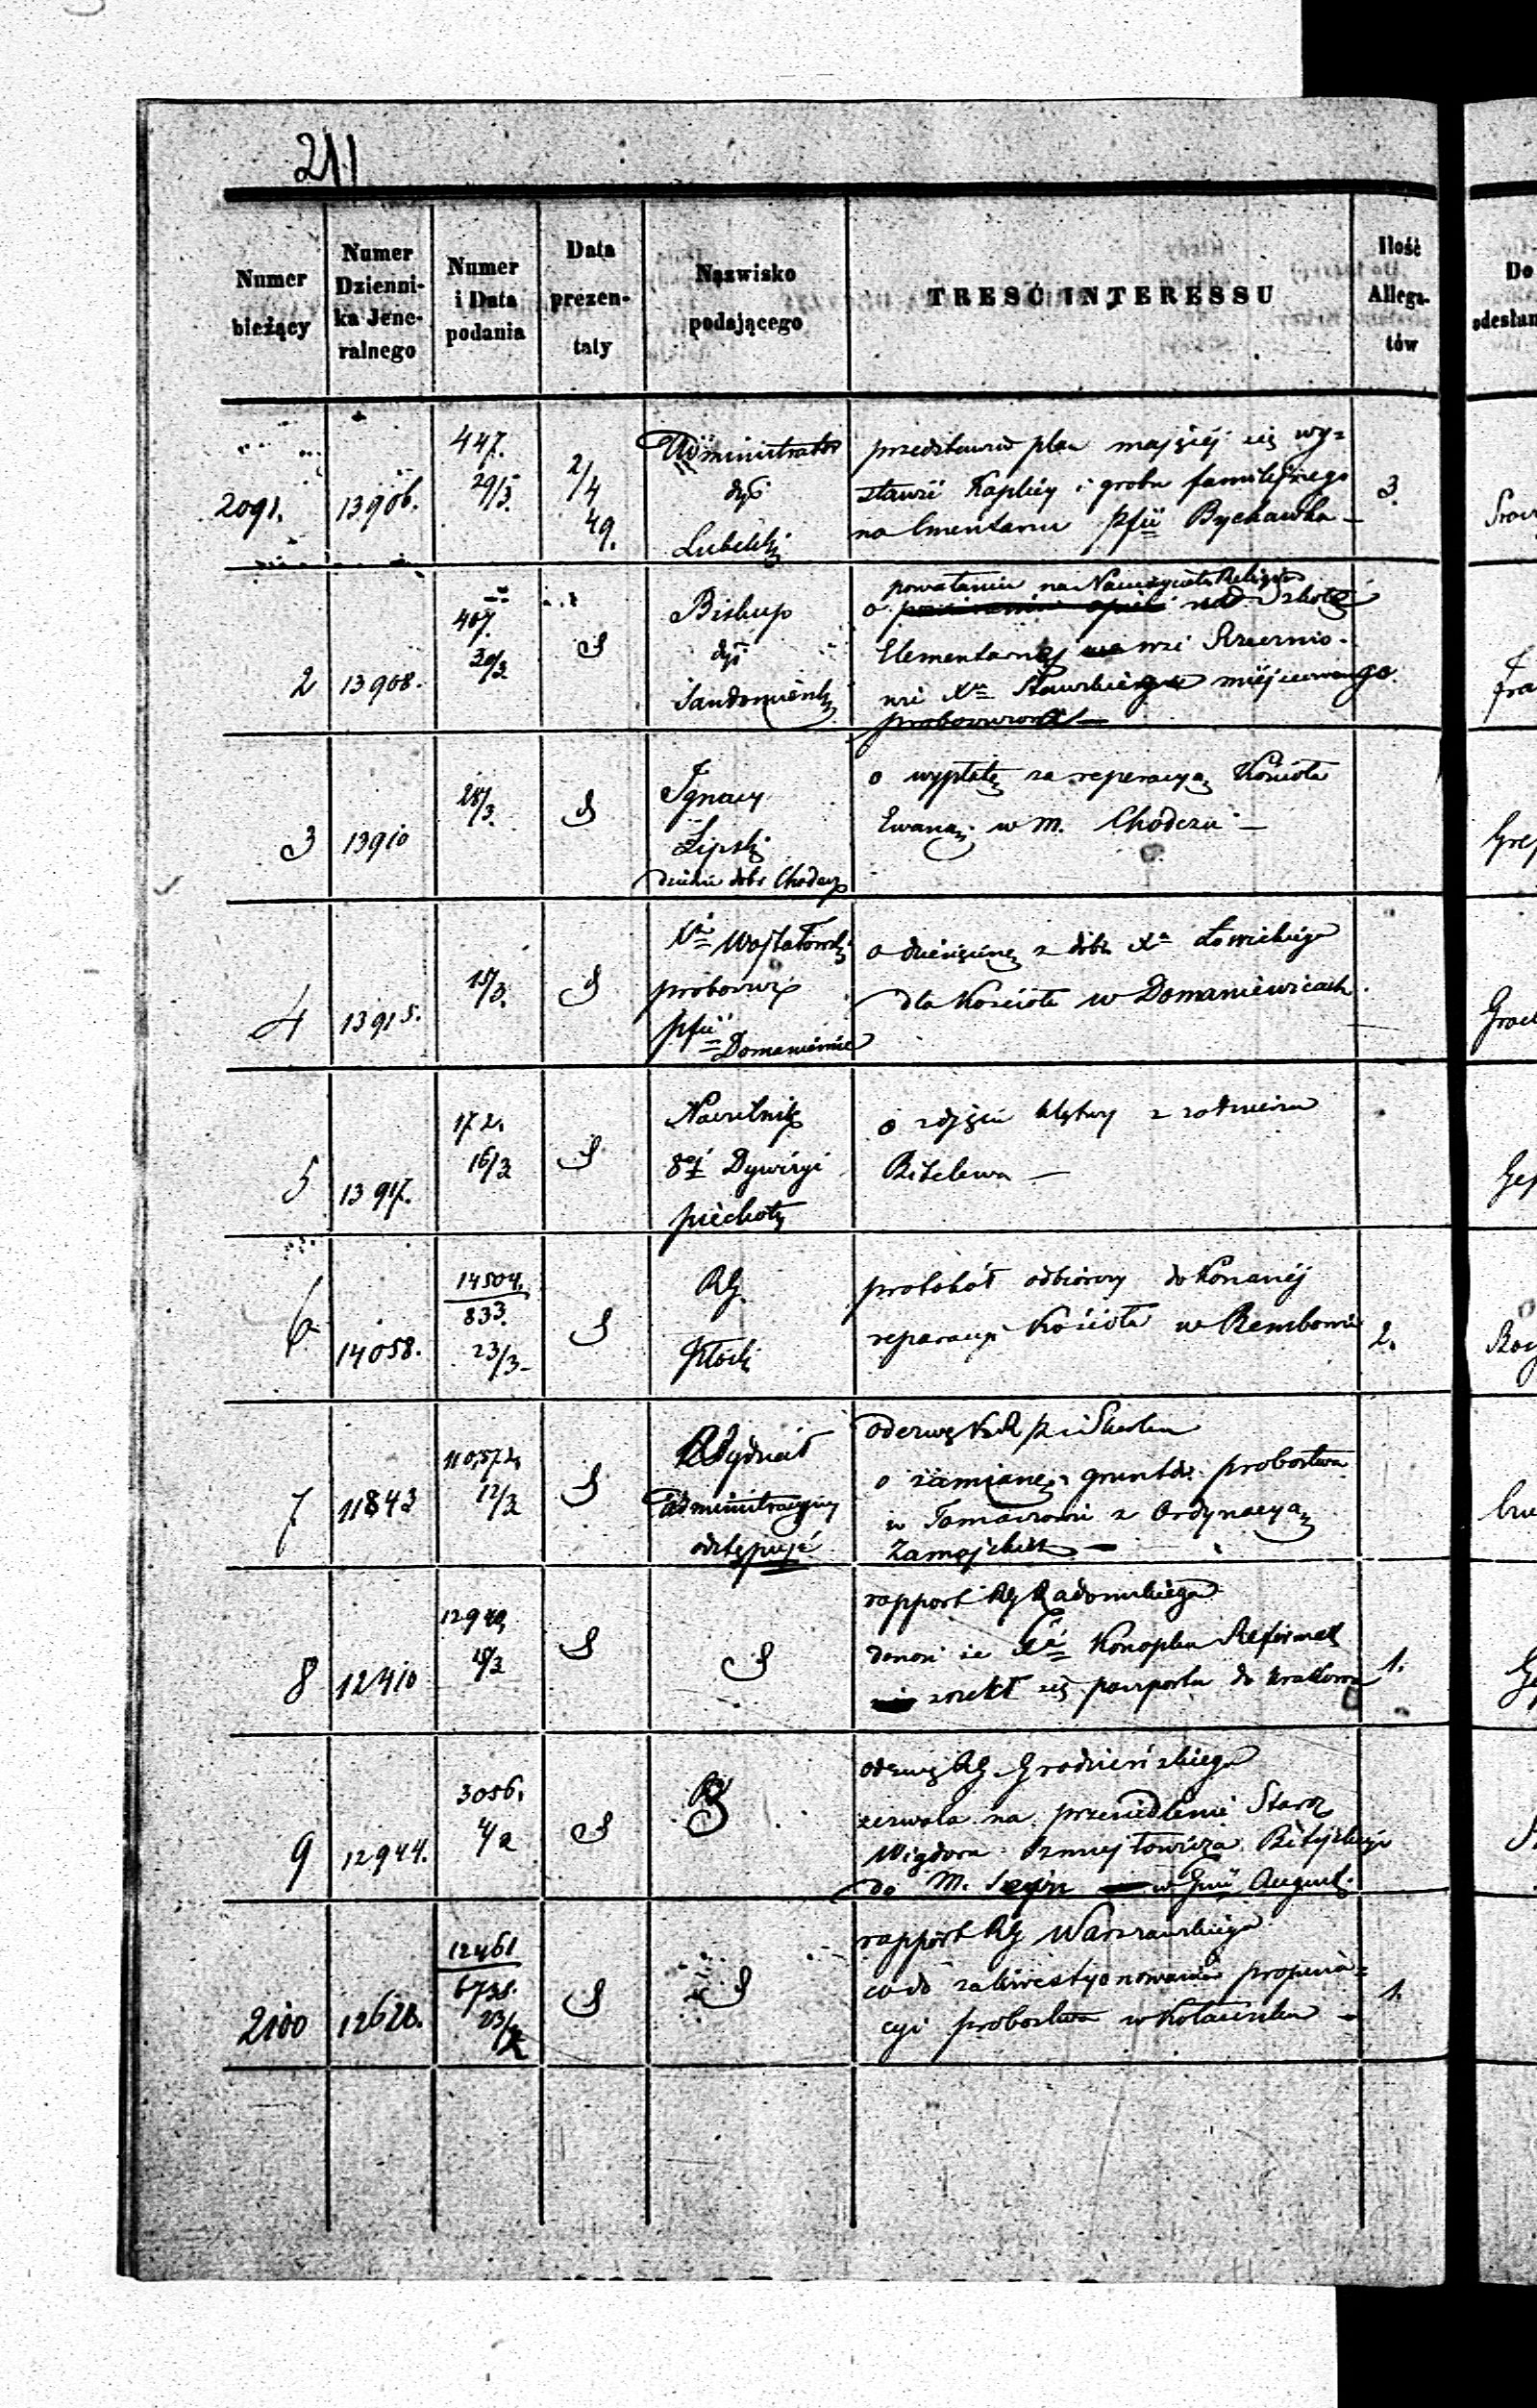 211
Numer bieżący
Numer Dzienni-ka Jene-ralnego
Numer i Data podania
Data prezen-taty
Nazwisko podającego
TREŚĆ INTERESSU
Ilość Allega-tów
Do odesłan
2091. 13906. 447. 29/3. 2/4 49. Administrator dyi Lubelski
przedstawia plan mającéj się wy=
stawić Kaplicy i grobu familijnego
na Cmentarzu pfii Bychawka —
3.
2 13908. 407. 30/3 Biskup dyi Sandomierski
powołaniu na Nauczyciela Religii
o nad Szkołą
Elementarnéj we wsi
Xa miejscowego
proboszcza —
3 13910 28/3. Ignacy Lipski dziedzic dobr Chodecz
o wypłatę za reperacyą Kościoła
Ewang. w m. Chodczu —
4 13915. 15/3. Xdz probosz pfii Domaniewice
o dziesięcinę z dóbr Xa Łowickiego
dla Kościoła w Domaniewicach
5 13917. 172. 16/3 Naczelnik 8éj Dywizyi piechoty
o zdjęciu klątwy z żołnierza
—
6 14058. 14504. 833. 23/3 - RG. Płocki
protokół odbiorczy dokonanéj
reparacyi Kościoła w Rembowie
2.
7 11843 110,572. 12/3 Wydział Administracyjny odstępuje
odezwę Skarbu
o zamianę gruntów probostwa
w Tomaszowie z Ordynacyą
Zamojskich —
8 12410 12940, 18/3
rapport RG Radomskiego
donosi że Xdz Konopka Reformat
zrzekł się paszportu do Krakowa
1.
9 12944. 3056. 4/2
odezwę RG. Grodzieńskiego
zezwala na przesiedlenie Staroz
Wigdora
do M. Sejn w Gnii August.
2100 12628. 12461 6738. 23/
rapport RG Warszawskiego
co do zakwestyonowania propina=
cyi probostwa w —
1.